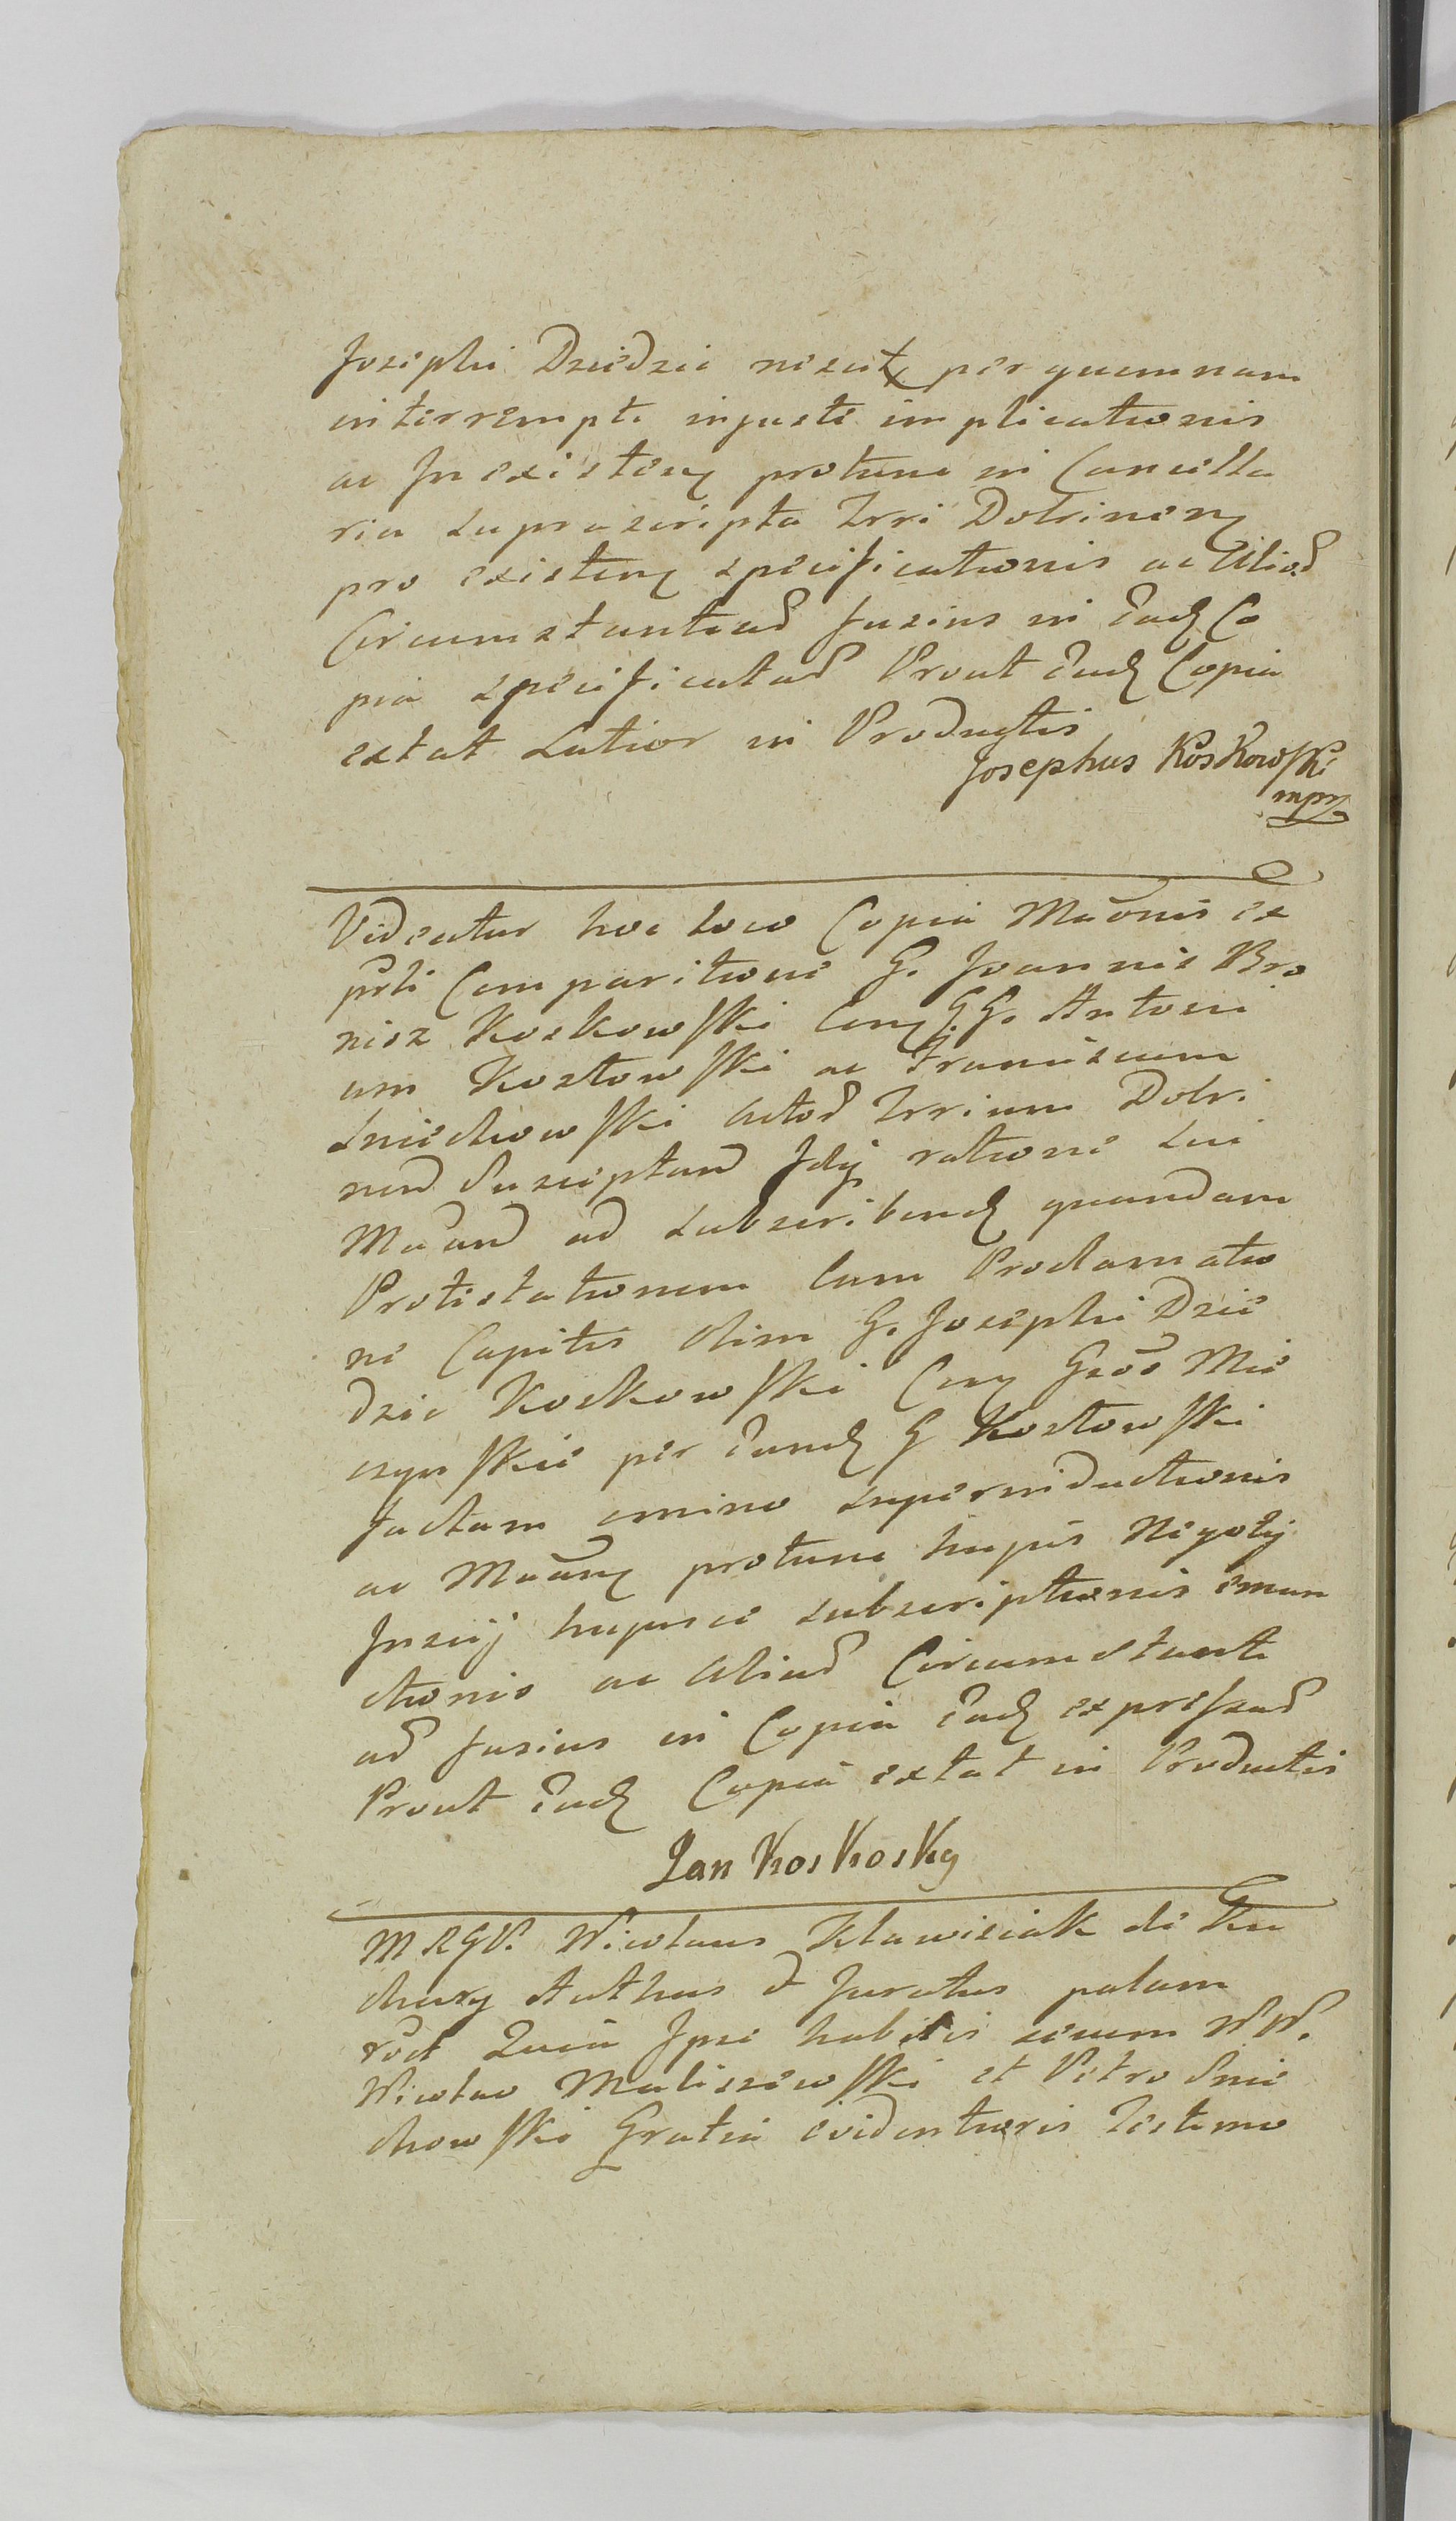 Josephi Dziedzic nesciŧ per quemnam
interrempti injuste implicationis
ac Inexisten protunc in Cancella
ria suprascripta Trri Dobrinen
pro existen specificationis ac Aliod
Circumstantiad fusius in Ead Co
pia specificatad Prout Ead Copia
extat Latior in Productis
Josephus KosKowsKi
mpr
Videatur hoc loco Copia Maonis ex
prti Comparitione G. Joannis Bro
nisz Koskowski Con G.G. Antoni
um Kozłowski ac Franciscum
Sniechowski Actod Trrium Dobri
nen Susceptan Idij ratione sui
Maan ad subscribend quandam
Protestationem Cum Proclamatio
ne Capitis olim G. Josephi Dzie
dzic Koskowski Con Gsos Mie
czynskie per Eund G Kozłowski
factam omino superinductionis
ac Maan protunc hujus Negotij
Inscij hujusce subscriptionis eman
ctionis ac Aliad Circumstanti
ad fusius in Copia Ead expressad
Prout Ead Copia extat in Productis
Jan KosKosKy
M R G V. Nicolaus Klawisiak de Ku
chary Authus & Juratus palam
rdct Quia Ipse habitis secum N N.
Nicolao Maliszewski et Petro Snie
chowski Gratia evidentioris Testimo